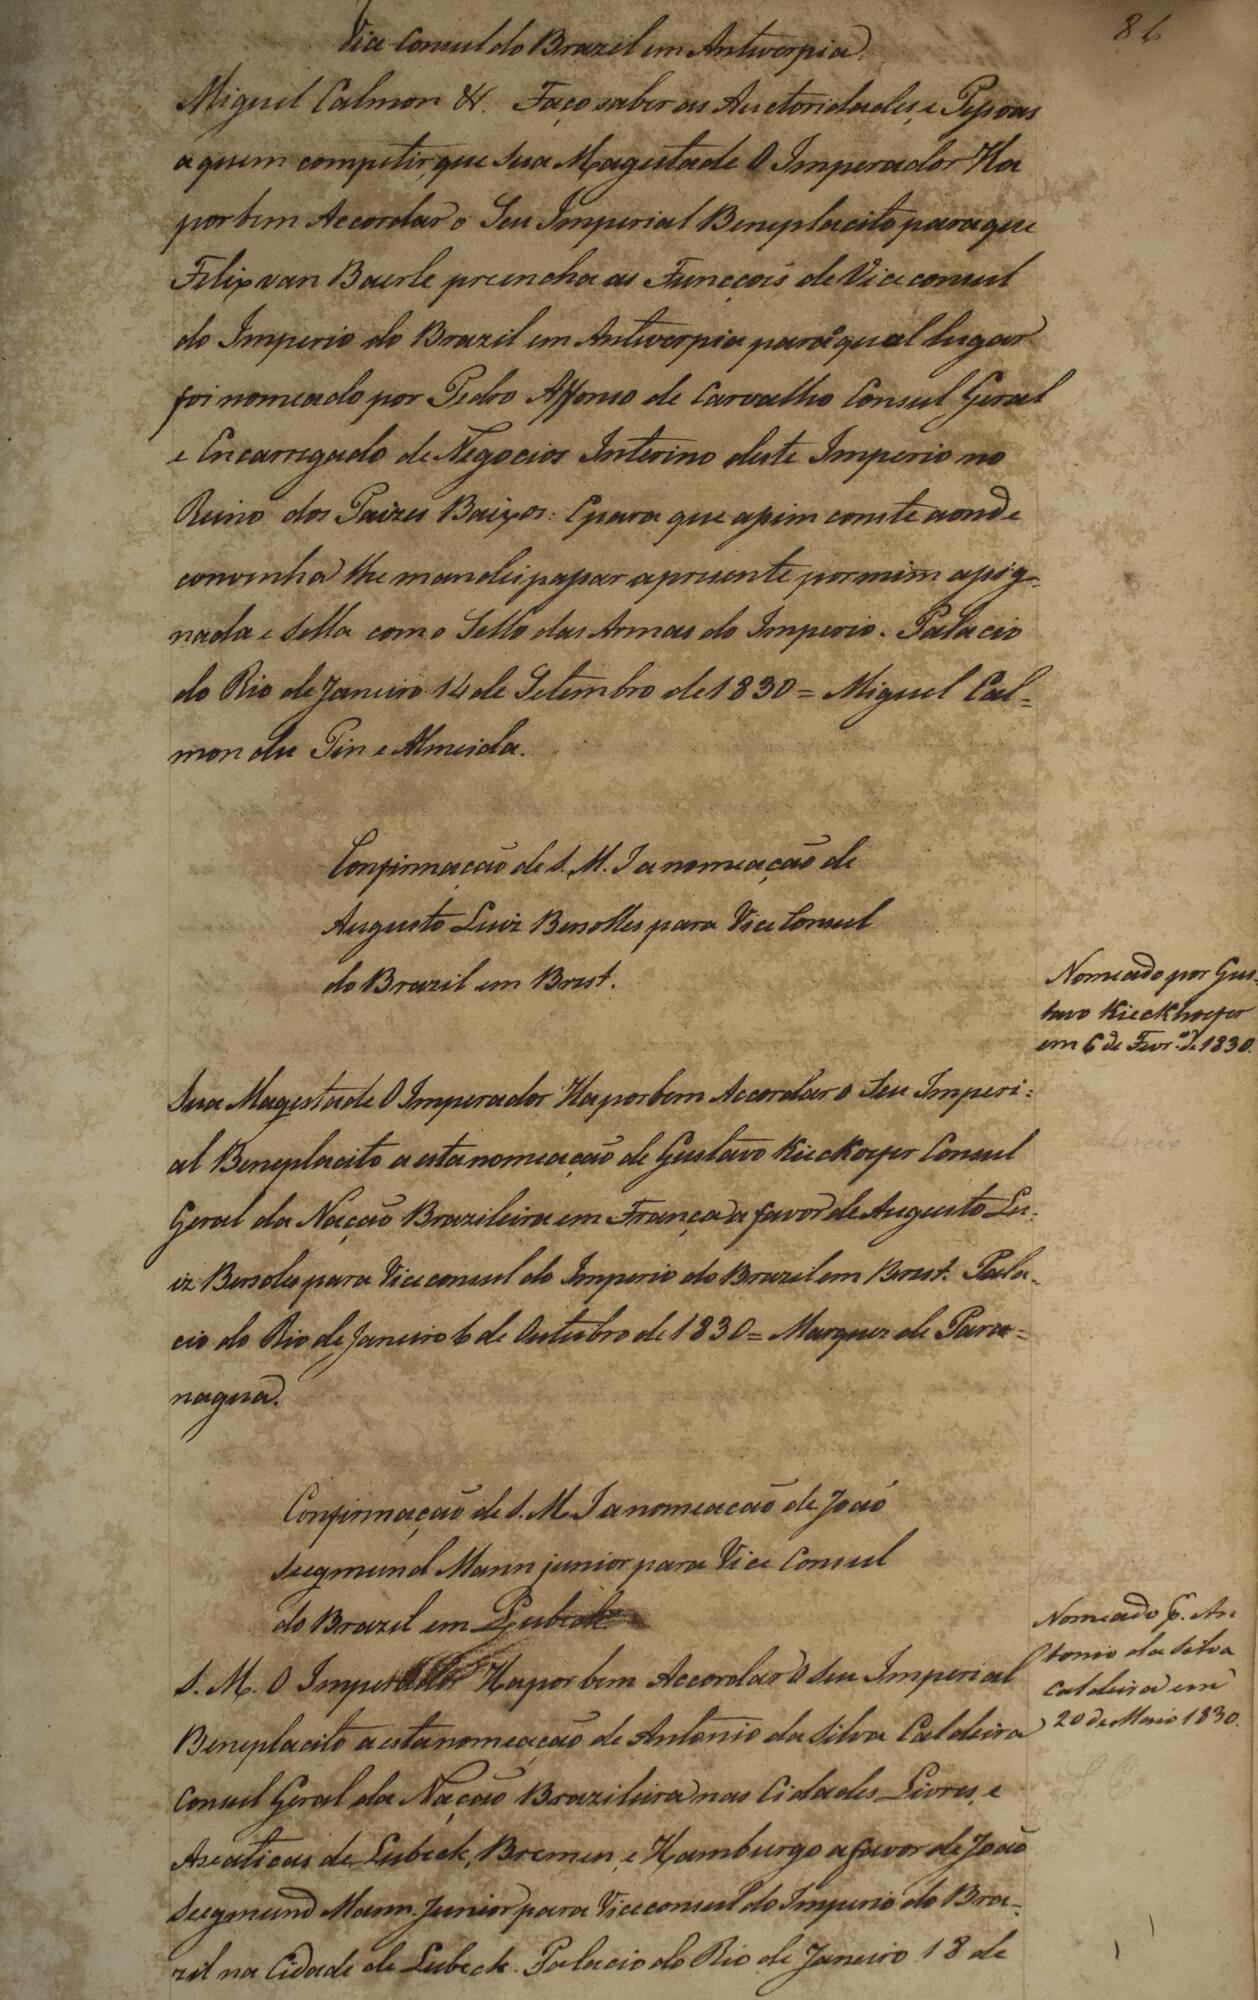 86
Vice Consul do Brazil em Antwerpia.
Miguel Calmon &. Faço saber as Auctoridades, e Pessoas
a quem competir, que Sua Magestade O Imperador Ha
por bem Accordar o Seu Imperial Beneplacito para que
Felix van Baerle preencha as Funcçois de Vice consul
do Imperio do Brazil em Antwerpia para o qual lugar
foi nomeado por Pedro Affonso de Carvalho Consul Geral
e Encarregado de Negocios Interino deste Imperio no
Reino dos Paizes Baixos: E para que assim conste aonde
convenha lhe mandei passar a presente por mim assig-
nada e Sella com o Sello das Armas do Imperio. Palacio
do Rio de Janeiro 14 de Setembro de 1830 = Miguel Cal=
mon du Pin e Almeida.
Confirmação de S. M. I a nomeação de
Augusto Luiz Bersolles para Vice Consul
do Brazil em Brest.
Nomeado por Gus-
tavo Kieckhoefer
em 6 de Fevr.º de 1830.
Sua Magestade O Imperador Ha por bem Accordar o Seu Imperi=
al Beneplacito a esta nomeação de Gustavo Kieckoefer Consul
Geral da Nação Brazileira em França a favor de Augusto Lu-
iz Bersoles para Vice consul do Imperio do Brazil em Brest. Pala-
cio do Rio de Janeiro 6 de Outubro de 1830 = Marquez de Para=
nagua.
Confirmação de S. M. I a nomeacão de João
Seegmund Mann junior para Vice Consul
do Brazil em Lubeck
Nomeado P. An
tonio da Silva
Caldeira em
20 de Maio 1830.
S. M. O Imperador Ha por bem Accordar O seu Imperial
Beneplacito a esta nomeação de Antonio da Silva Caldeira
Consul Geral da Nação Brazileira nas Cidades Livres, e
Aseaticas de Lubeck, Bremen, e Hamburgo a favor de João
Seegmund Mann Junior para Vice consul do Imperio do Bra-
zil na Cidade de Lubeck. Palacio do Rio de Janeiro 18 de